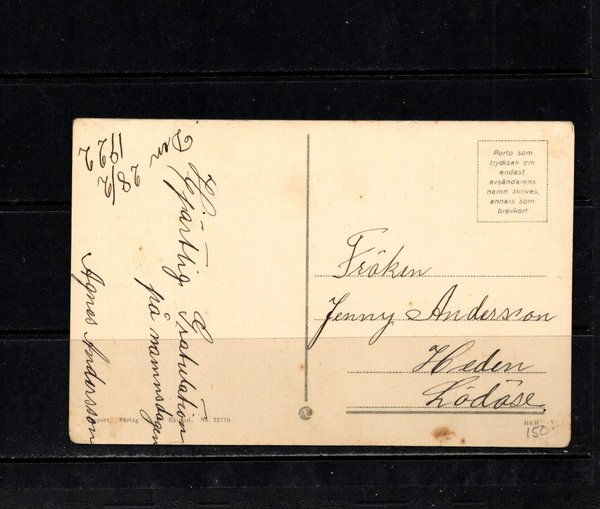 Hjärtlig Gratulation
på namnsdagen
Den 2 8/2
1922
Agnes Andersson
Porto som
trycksak om
endast
avsändarens
namn skrives,
annars som
brevkort
Fröken
Jenny Andersson
Heden
Lödöse.
No. 22770
150:-